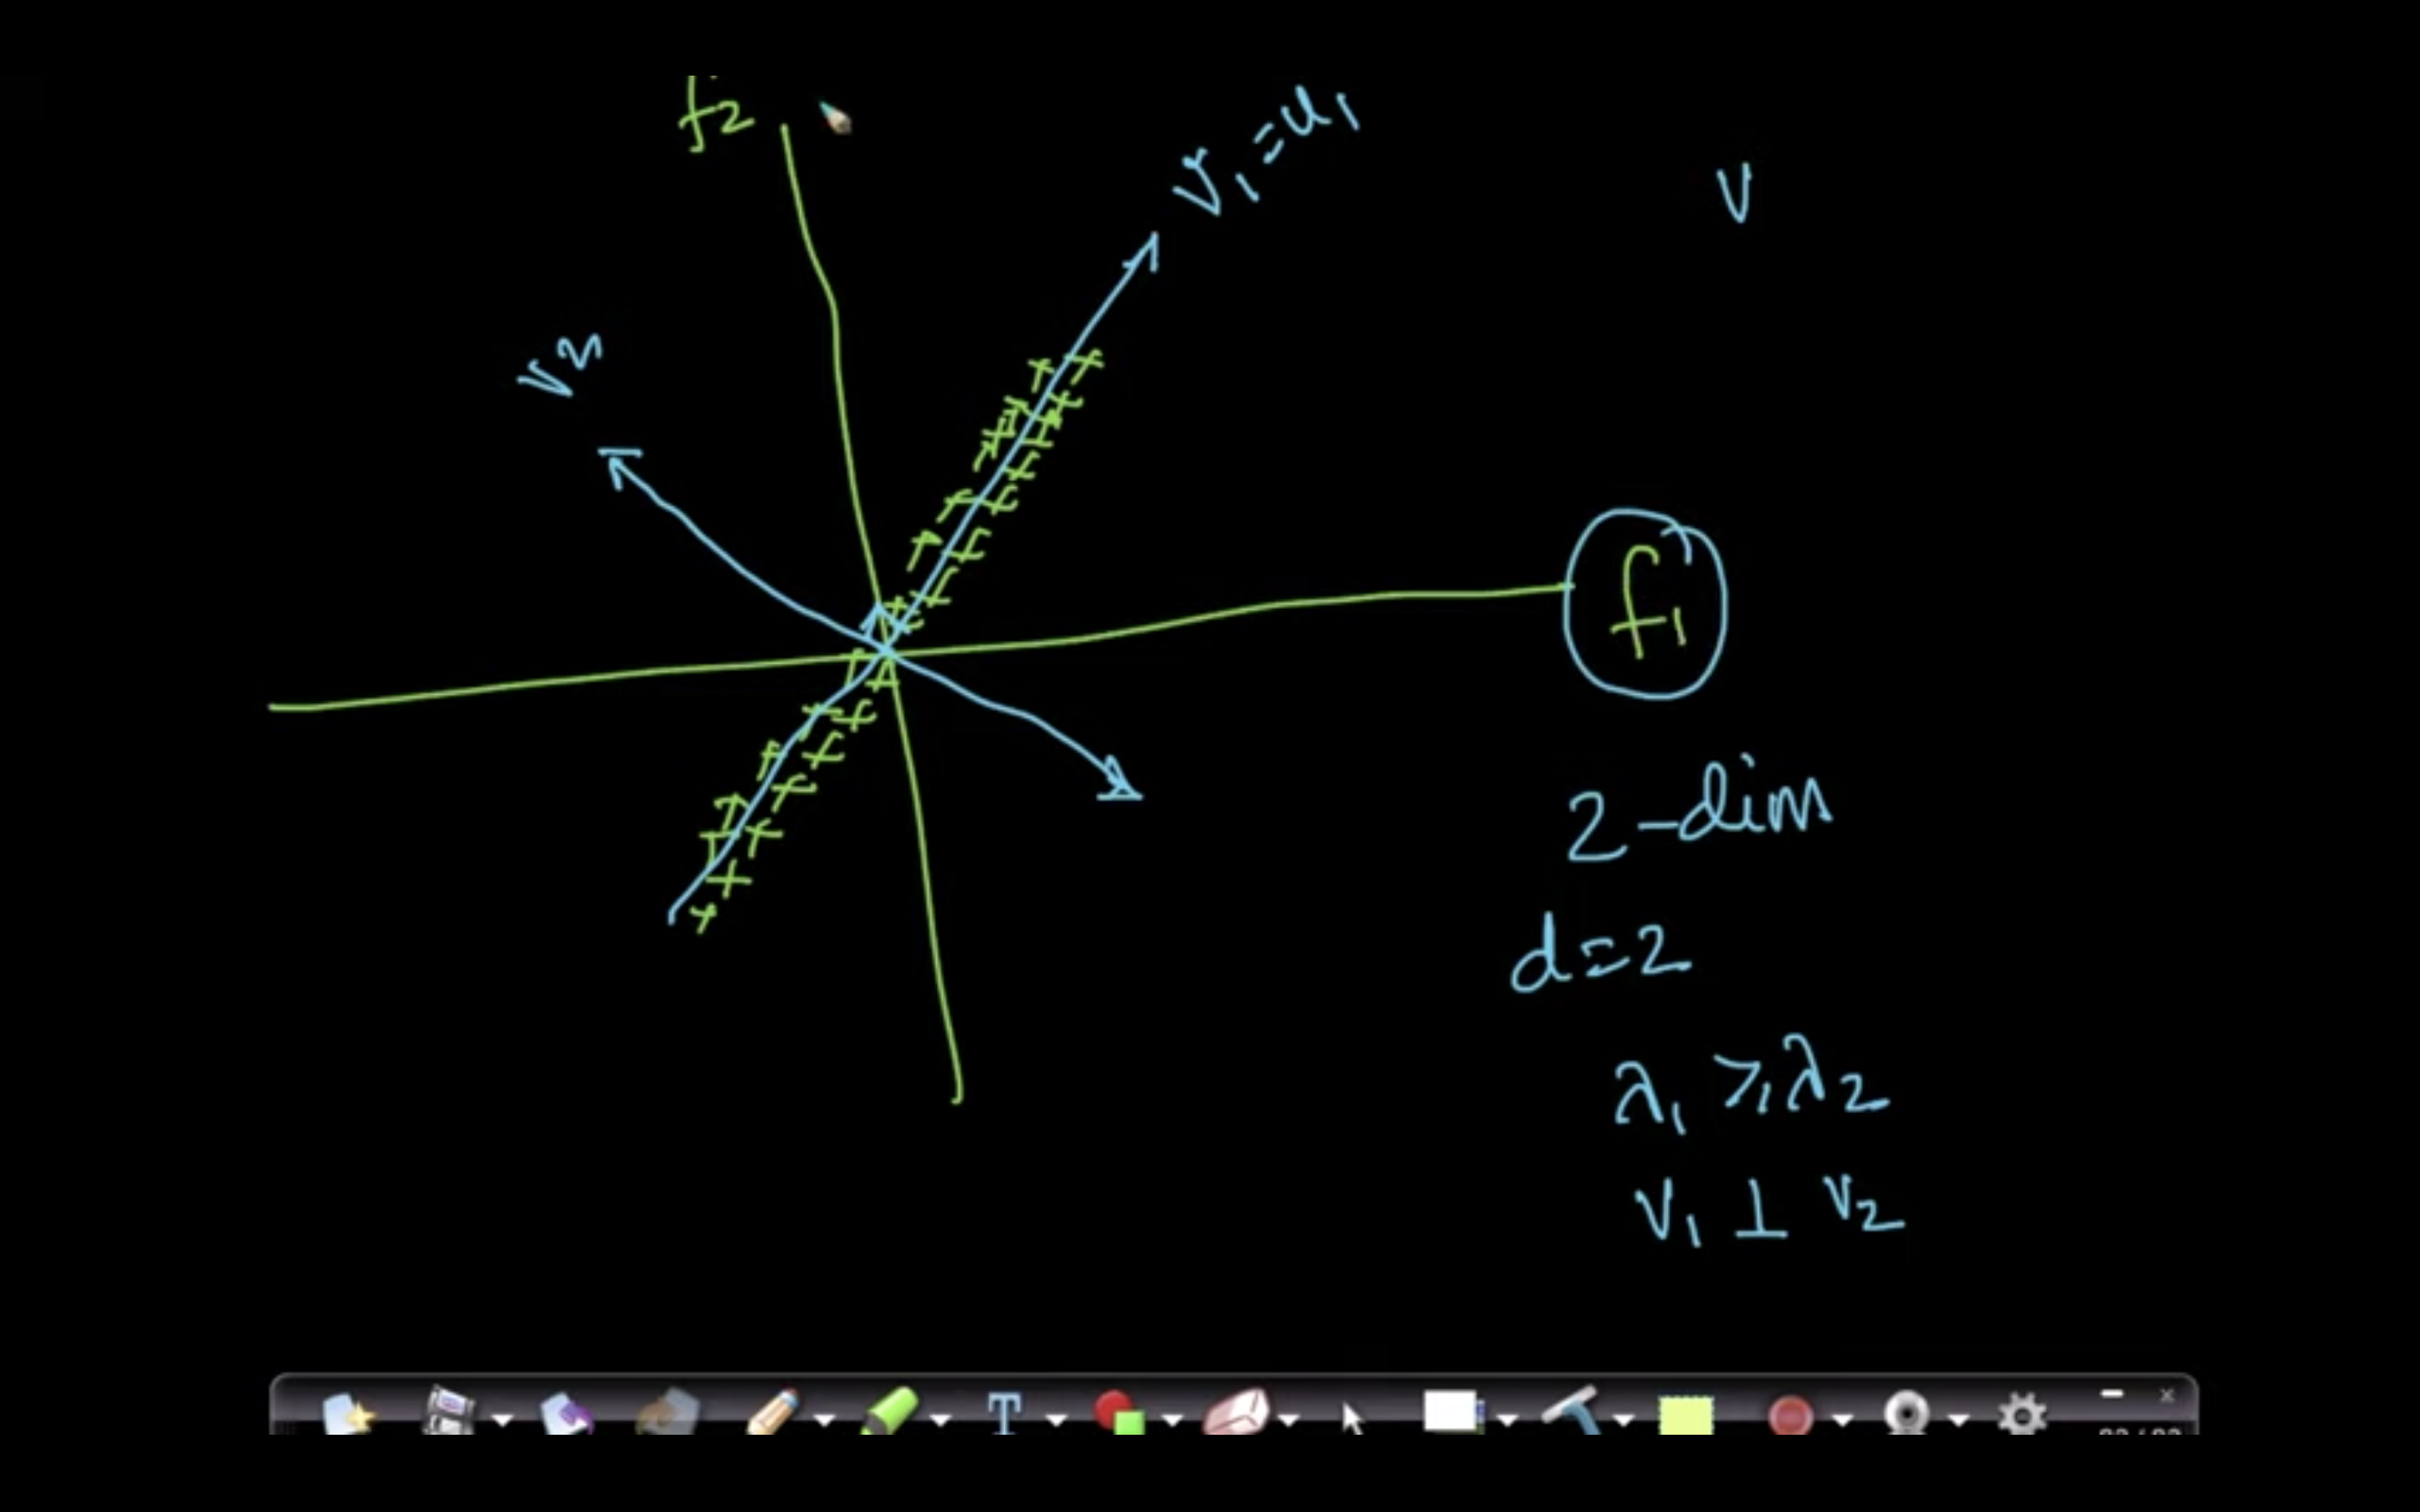 f2
V1 = u1
V
V2
f1
2-dim
d=2
λ1 ≥ λ2
V1 ⊥ V2
T